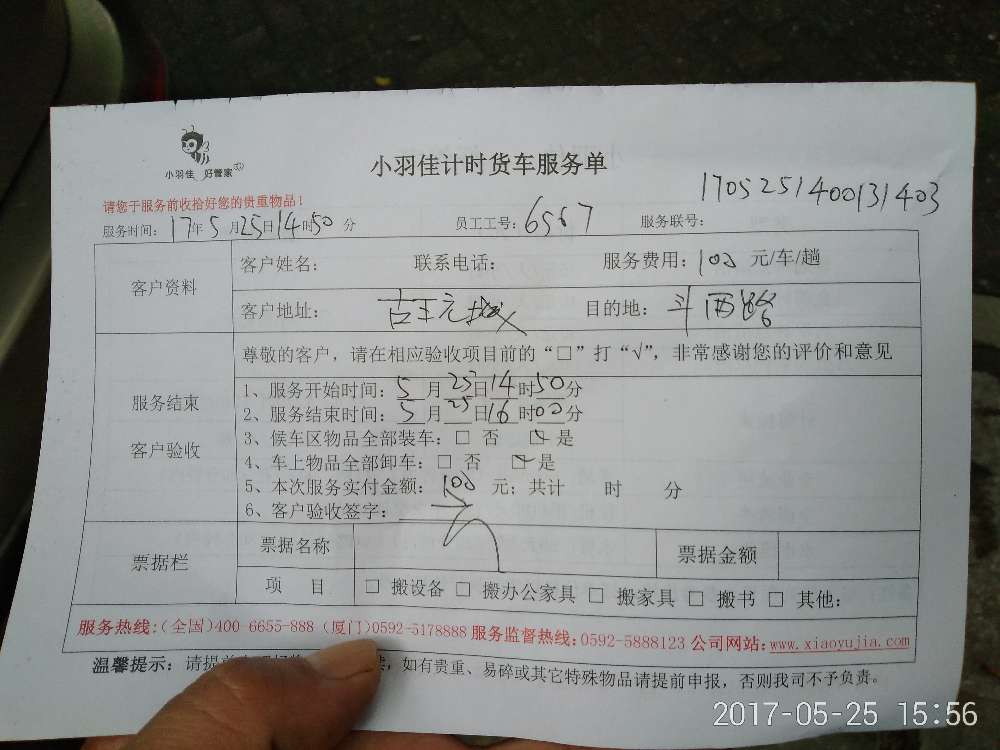 小羽佳 好管家
小羽佳计时货车服务单
1705251400131403
请您于服务前收拾好您的贵重物品！
服务时间：17年5月25日14时50分 员工工号：6567 服务联号：
客户资料
客户姓名： 联系电话： 服务费用：100元/车/趟
客户地址： 目的地：斗西路
服务结束
客户验收
尊敬的客户，请在相应验收项目前的“□”打“√”，非常感谢您的评价和意见
1、服务开始时间：5月25日14时50分
2、服务结束时间：5月25日16时00分
3、候车区物品全部装车：□ 否 ☑ 是
4、车上物品全部卸车：□ 否 ☑ 是
5、本次服务实付金额：100元；共计 时 分
6、客户验收签字：
票据栏
票据名称 票据金额
项 目 □ 搬设备 □ 搬办公家具 □ 搬家具 □ 搬书 □ 其他：
服务热线：(全国)400-6655-888 (厦门)0592-5178888 服务监督热线：0592-5888123 公司网站：www.xiaoyujia.com
温馨提示：请提前 ，如有贵重、易碎或其它特殊物品请提前申报，否则我司不予负责。
2017-05-25 15:56